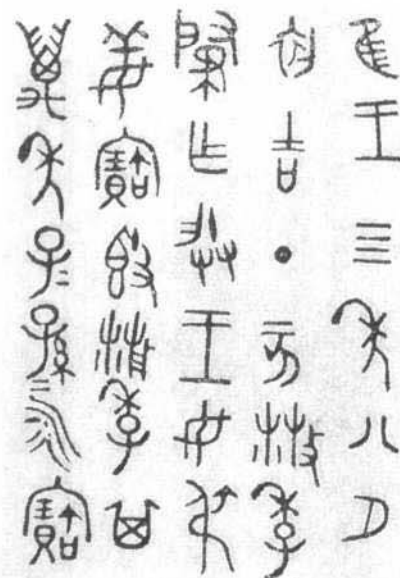 隹王四年八月
初吉丁亥散季
肇乍朕王母叔
姜寶𣪘散季其
萬年子=孫=永寶